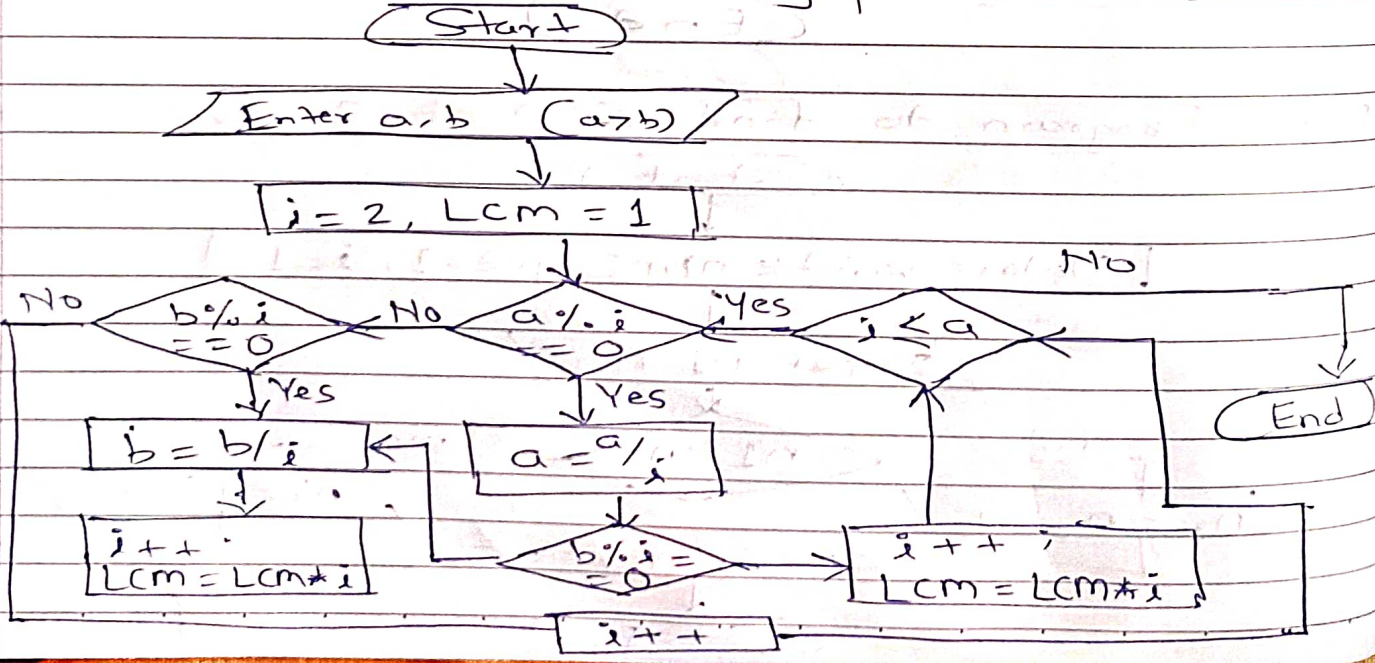 Start
Enter a, b (a>b)
i = 2, Lcm = 1
No
No b%i == 0 No a%i == 0 Yes i <= a
Yes Yes End
b = b/i a = a/i
i++ b%i == 0 i++;
Lcm = Lcm*i Lcm = Lcm*i
i++